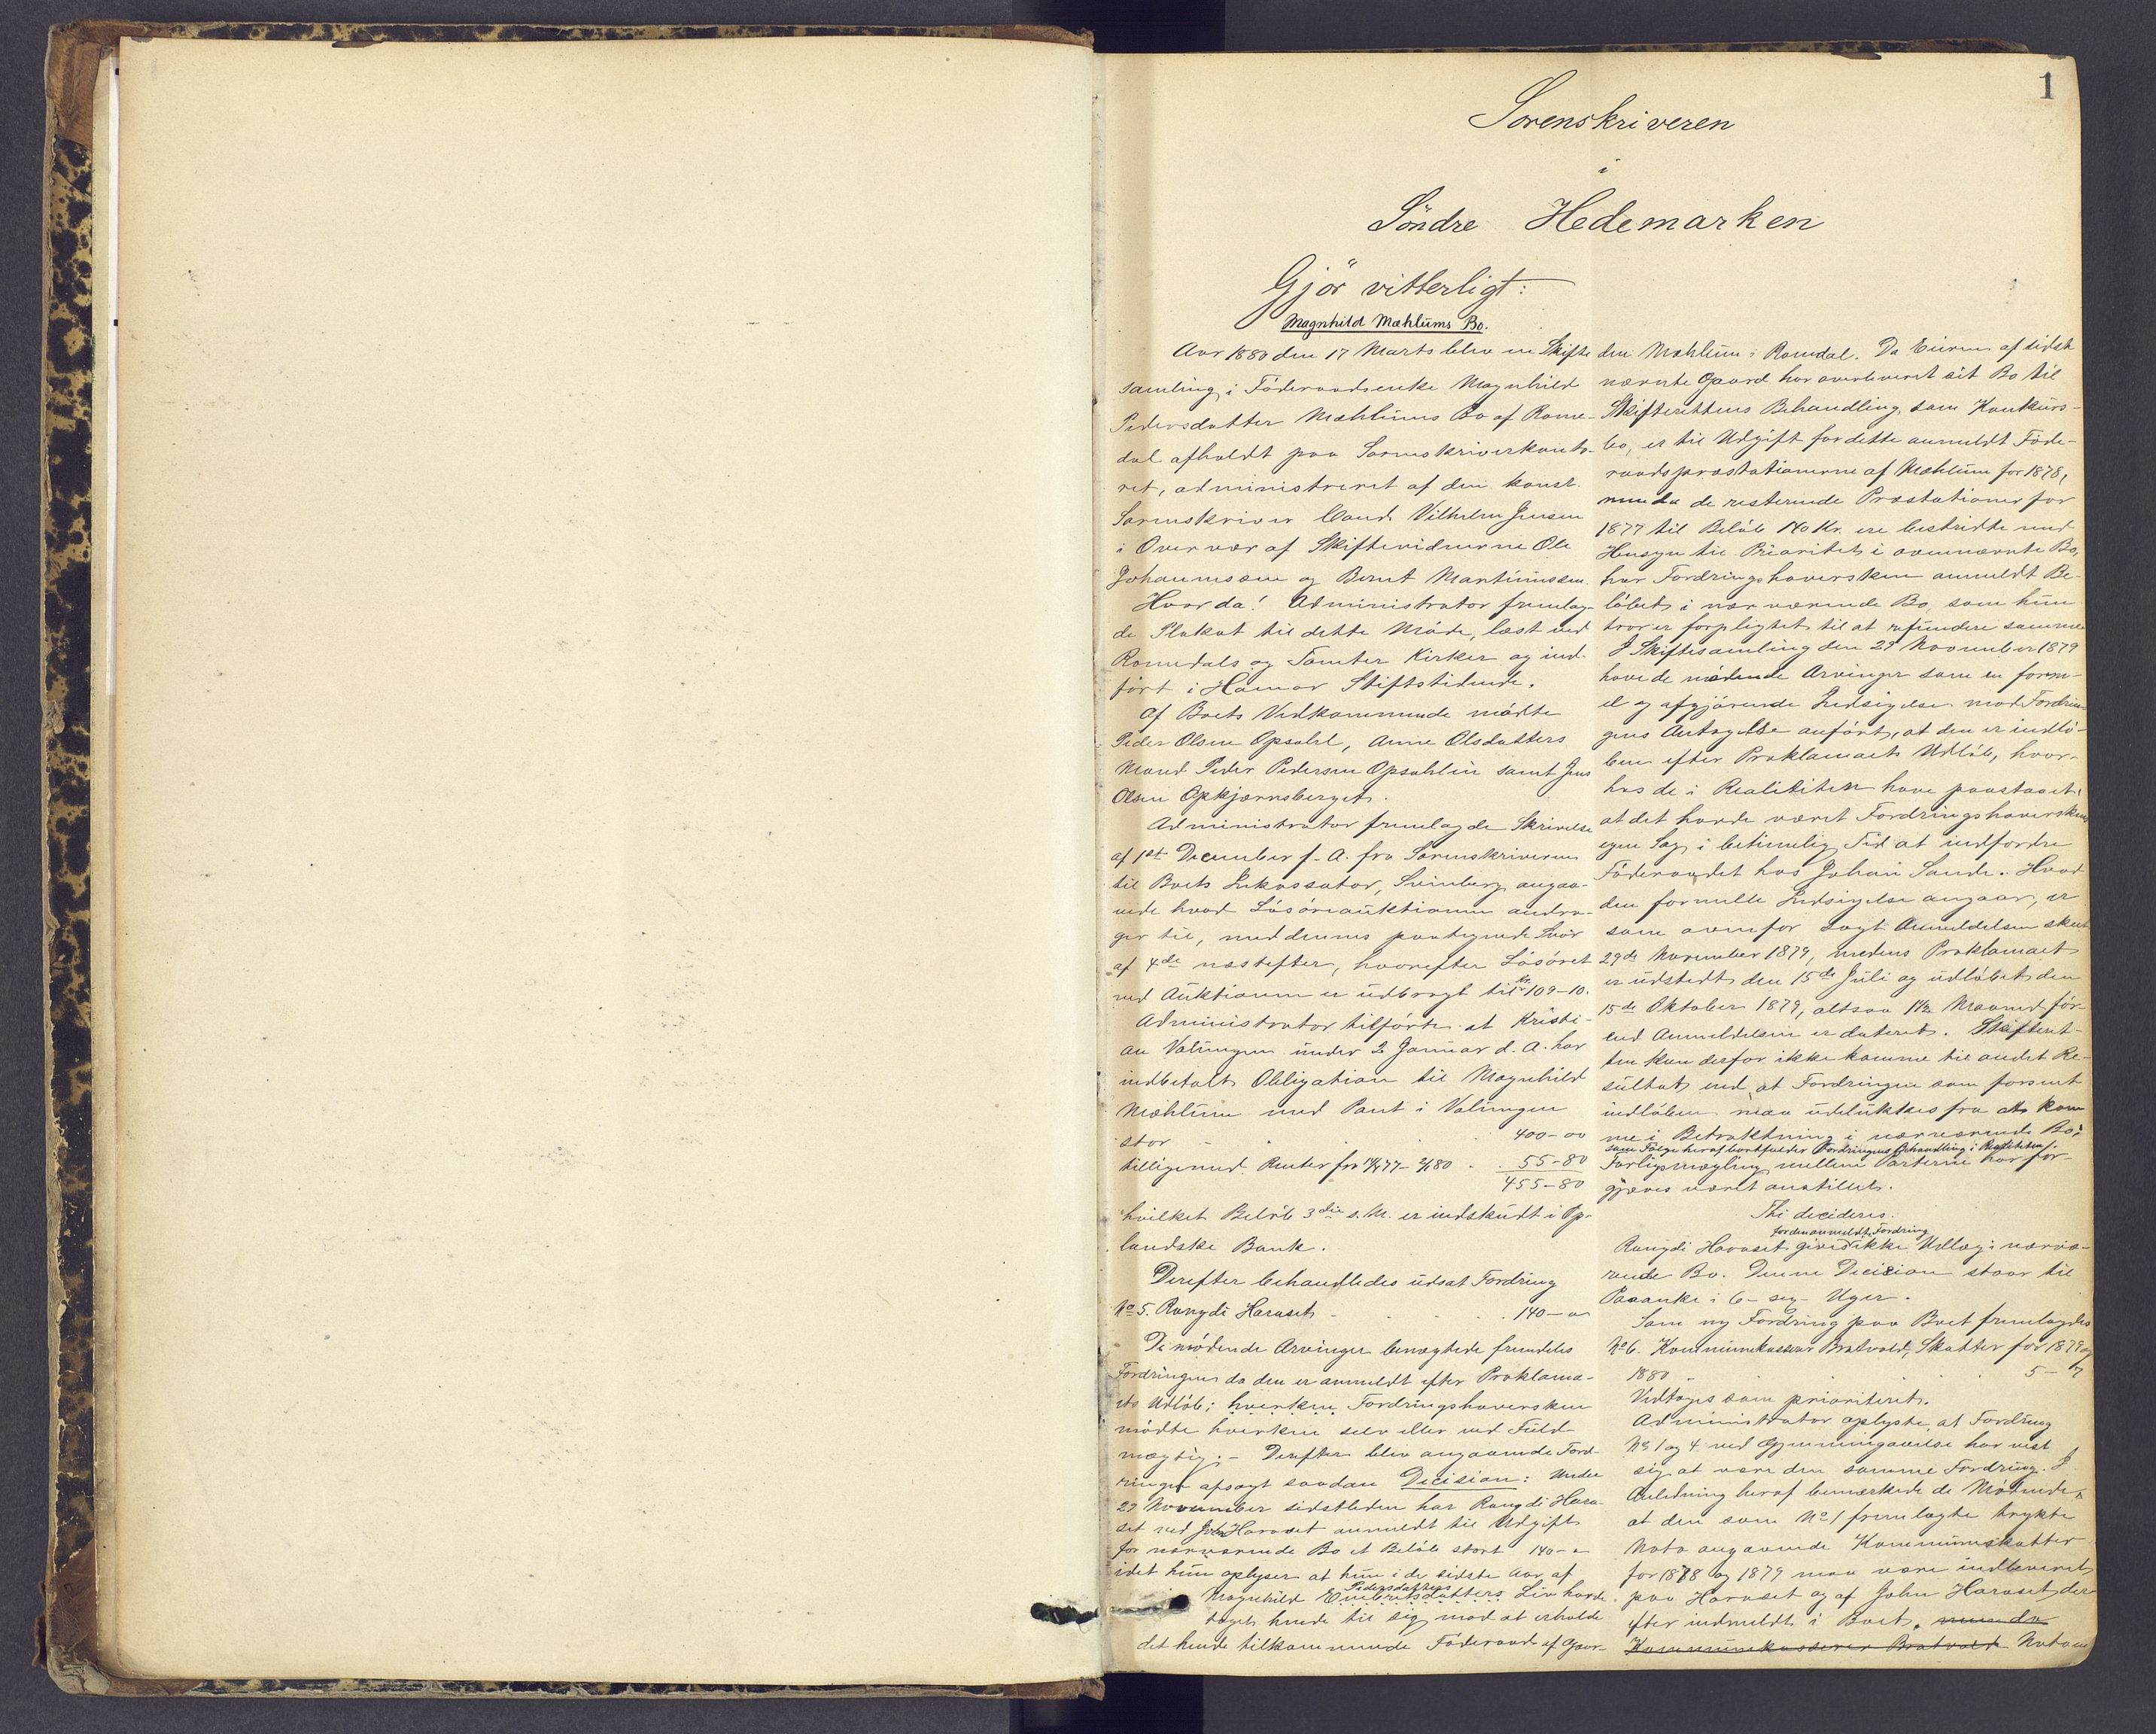 1
Sorenskriveren
i
Söndre Hedemarken
Gjör vitterligt:
Magnhild Mæhlums Bo.
Aar 1880 den 17 Marts blev en Skifte
samling i Föderaadsenke Magnhild
Pedersdatter Mæhlums Bo af Rome-
dal afholdt paa Sorenskriverkonto-
ret, administreret af den konst.
Sorenskriver Cand. Vilhelm Jensen
i Overvær af Skiftevidnerne Ole
Johannessen og Bernt Martinussen.
Hvor da! Administrator fremlag-
de Plakat til dette Möde, læst ved
Romedals og Tomter Kirker og ind-
fört i Hamar Stiftstidende.
Af Boets Vedkommende mödte
Peder Olsen Opsahl, Anne Olsdatters
Mand Peder Pedersen Opsahlen samt Jens
Olsen Opkjærnsberget.
Administrator fremlagde Skrivelse
af 1st December f. A. fra Sorenskriveren
til Boets Inkassator, Svenberg angaa-
ende hvad Lösöreauktionen andra-
ger til, med dennes paategnede Svar
af 4de næstefter, hvorefter Lösöret
ved Auktionen er udbragt til kr. 109-10.
Administrator tilförte at Kristi-
an Valungen under 2 Januar d. A. har
indbetalt Obligation til Magnhild
Mæhlum med Pant i Valungen
stor 400-00
tilligemed Renter fra 14/4 77 - 2/1 80 55-80
455-80
hvilket Belöb 3die s. M. er indskudt i Op-
landske Bank.
Derefter behandledes udsat Fordring
No 5. Rangdi Haraset 140-00
De mödende Arvinger benægtede fremdeles
Fordringen da den er anmeldt efter Proklama-
ets Udlöb; hverken Fordringshaversken
mödte hverken selv eller ved Fuld-
mægtig. - Derefter blev angaaende Ford-
ringen afsagt saadan Decision: Under
29 November sidstleden har Rangdi Hara-
set ved John Haraset anmeldt til Udgift
for nærværende Bo et Belöb stort 140-00
idet hun oplyser at hun i de sidste Aar af
Pedersdatters
Magnhild Engebretsdatters Liv havde
taget hende til sig mod at erholde
det hende tilkommende Föderaad af Gaar-
den Mæhlum i Romedal. Da Eieren af sidst
nævnte Gaard har overleveret sit Bo til
Skifterettens Behandling som Konkurs-
bo, er til Udgift for dette anmeldt Föde-
raadspræstationerne af Mæhlum for 1878,
men da de resterende Præstationer for
1877 til Belöb 140 Kr. ere bestridte med
Hensyn til Prioritet i ovennævnte Bo,
har Fordringshaversken anmeldt Be-
löbet i nærværende Bo, som hun
tror er forpligtet til at refundere samme
I Skiftesamling den 29 November 1879
have de mödende Arvinger som en form-
el og afgjörende Indsigelse mod Fordrin-
gens Antagelse anfört, at den er indlö-
ben efter Proklamaets Udlöb, hvor-
hos de i Realiteten have paastaaet
at det havde været Fordringshaverskens
egen Sag i betimelig Tid at indfordre
Föderaadet hos Johan Sande. Hvad
den formelle Indsigelse angaar, er
som ovenfor sagt Anmeldelsen skeet
29de November 1879, medens Proklamaet
er udstedt den 15de Juli og udlöbet den
15de Oktober 1879, altsaa 1 1/2 Maaned för-
end Anmeldelsen er dateret. Skifteret-
ten kan derfor ikke komme til andet Re-
sultat end at Fordringen som forsent
indlöben maa udelukkes fra at kom
me i Betraktning i nærværende Bo;
som Fölge heraf bortfalder Fordringens Behandling i Realiteten.
Forligsmægling mellem Parterne har for-
gjæves været anstillet.
Thi decideres.
for den anmeldte Fordring
Rangdi Haraset gives ikke Udlæg i nærvæ-
rende Bo. Denne Decision staar til
Paaanke i 6 - sex - Uger.
Som ny Fordring paa Boet fremlagdes
No 6. Kommunekasserer Bratvold, Skatter for 1879 og
1880 5-7
Vedtoges som prioriteret.
Administrator oplyste at Fordring
No 1 og 4 ved Gjennemgaaelse har vist
sig at være den samme Fordring. I
Anledning heraf bemærkede de Mödende,
at den som No 1 fremlagte trykte
Nota angaaende Kommuneskatter
for 1878 og 1879 maa være indleveret
paa Haraset og af John Haraset der-
efter indmeldt i Boet, men da
Kommunekasserer Bratvold Notaen